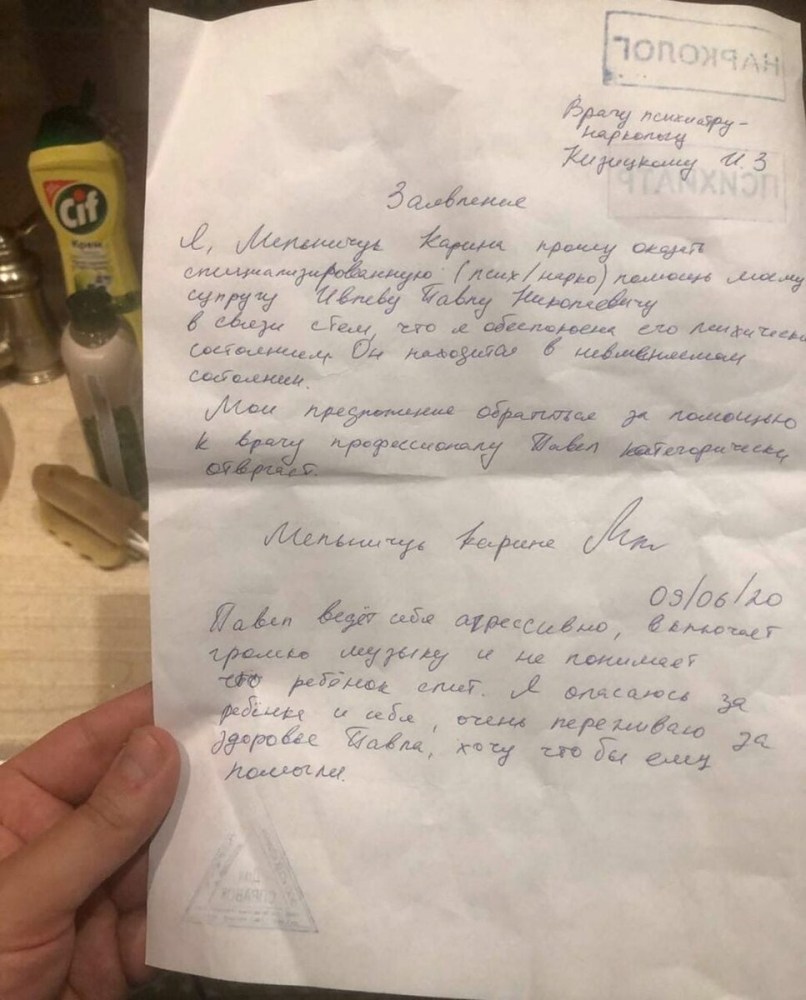 НАРКОЛОГ
Врачу психиатру-
наркологу
Кизицкому И. З
ПСИХИАТР
Заявление
Я, Мельничук Карина прошу оказать
специализированную (псих/нарко) помощь моему
супругу Ивлеву Павлу Николаевичу
в связи с тем, что я обеспокоена его психически
состоянием. Он находится в невменяемом
состоянии.
Мои предложение обратиться за помощью
к врачу профессионалу Павел категорически
отвргает.
Мельничук Карине
09/06/20
Павел ведёт себя агрессивно, включает
громко музыку и не понимает
что ребёнок спит. Я опасаюсь за
ребёнка и себя, очень переживаю за
здоровье Павла, хочу что бы ему
помогли.
Cif
Крем